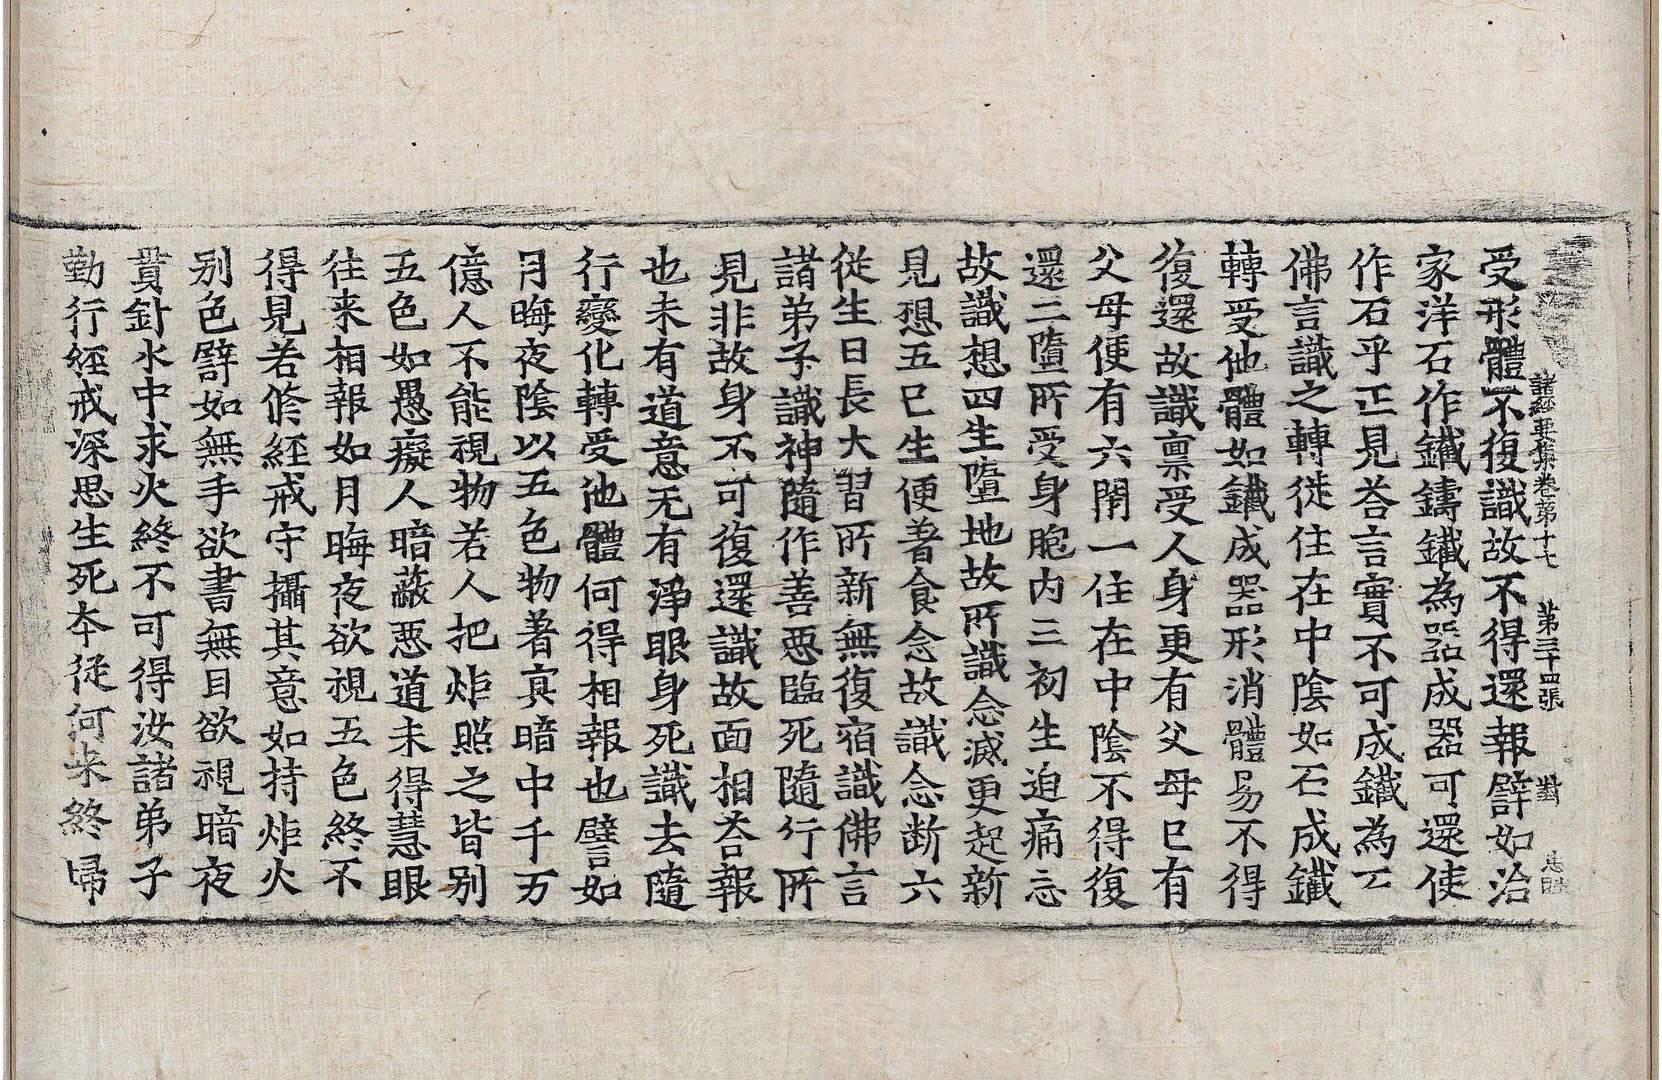 諸經要集卷第十七　第三十四張　對
受形體不復識故不得還報譬如治
家洋石作鐵鑄鐵為器成器可還使
作石乎正見荅言實不可成鐵為石
佛言識之轉徙住在中陰如石成鐵
轉受他體如鐵成器形消體易不得
復還故識稟受人身更有父母已有
父母便有六閉一住在中陰不得復
還二墮所受身胞內三初生迫痛忘
故識想四生墮地故所識念滅更起新
見想五已生便著食念故識念断六
從生日長大習所新無復宿識佛言
諸弟子識神隨作善惡臨死隨行所
見非故身不可復還識故面相荅報
也未有道意无有淨眼身死識去隨
行變化轉受他體何得相報也譬如
月晦夜陰以五色物著冥暗中千万
億人不能視物若人把炬照之皆别
五色如愚癡人暗蔽惡道未得慧眼
往来相報如月晦夜欲視五色終不
得見若脩經戒守攝其意如持炬火
别色譬如無手欲書無目欲視暗夜
貫針水中求火終不可得汝諸弟子
勤行經戒深思生死本從何来終歸